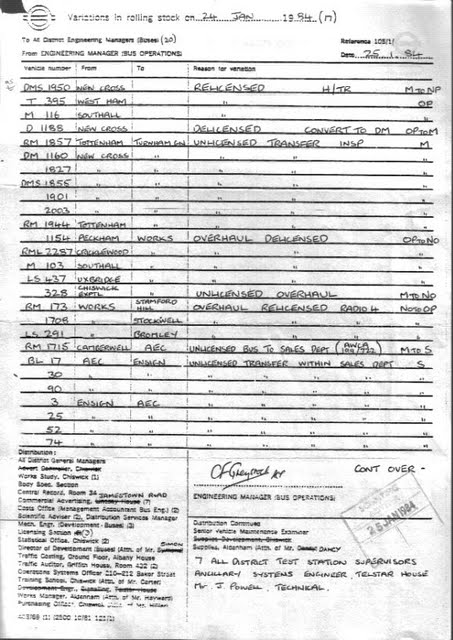 Variations in rolling stock on 24 JAN 1984 (17)
To All District Engineering Managers (Buses) (20) Reference 105/1/
From ENGINEERING MANAGER (BUS OPERATIONS) Date 25.1.84
Vehicle number From To Reason for variation
DMS 1950 NEW CROSS RELICENSED H/TR M TO NP
T 395 WEST HAM " OP
M 116 SOUTHALL " "
D 1188 NEW CROSS DELICENSED CONVERT TO DM OP TO M
RM 1857 TOTTENHAM TURNHAM GN UNLICENSED TRANSFER INSP M
DM 1160 NEW CROSS " " " "
1827 " " " " "
DMS 1855 " " " " "
1901 " " " " "
2003 " " " " "
RM 1944 TOTTENHAM " " " "
1154 PECKHAM WORKS OVERHAUL DELICENSED OP TO NO
RML 2287 CRICKLEWOOD " " " "
M 103 SOUTHALL " " " "
LS 437 UXBRIDGE " " " "
328 CHISWICK EXPTL " UNLICENSED OVERHAUL M TO NO
RM 173 WORKS STAMFORD HILL OVERHAUL RELICENSED RADIO 4 NO TO OP
1708 " STOCKWELL " " "
LS 291 " BROMLEY " " "
RM 1715 CAMBERWELL AEC UNLICENSED BUS TO SALES DEPT M TO S
BL 17 AEC ENSIGN UNLICENSED TRANSFER WITHIN SALES DEPT S
30 " " " " "
90 " " " " "
3 ENSIGN AEC " " "
25 " " " " "
52 " " " " "
74 " " " " "
CONT OVER -
ENGINEERING MANAGER (BUS OPERATIONS)
25 JAN 1984
Distribution:
All District General Managers
Works Study, Chiswick (1)
Body Spec. Section
Central Record, Room 3A JAMESTOWN ROAD
Commercial Advertising, (7)
Costs Office (Management Accountant Bus Eng.) (2)
Scientific Adviser (2), Distribution Services Manager
Mech. Engr. (Development - Buses) (3)
Licensing Section (3)
Statistical Office, Chiswick (2)
Director of Development (Buses) (Attn. of Mr. SIMON
Traffic Costing, Ground Floor, Albany House
Traffic Auditor, Griffith House, Room 432 (2)
Operations Systems Officer 210-212 Baker Street
Training School, Chiswick (Attn. of Mr. Carter)
Works Manager, Aldenham (Attn. of Mr. Hayward)
Purchasing Officer,
Distribution Continued
Senior Vehicle Maintenance Examiner
Supplies Development, Chiswick
Supplies, Aldenham (Attn. of Mr. DANCY
7 ALL DISTRICT TEST STATION SUPERVISORS
ANCILLARY SYSTEMS ENGINEER TELSTAR HOUSE
MR. J. POWELL TECHNICAL.